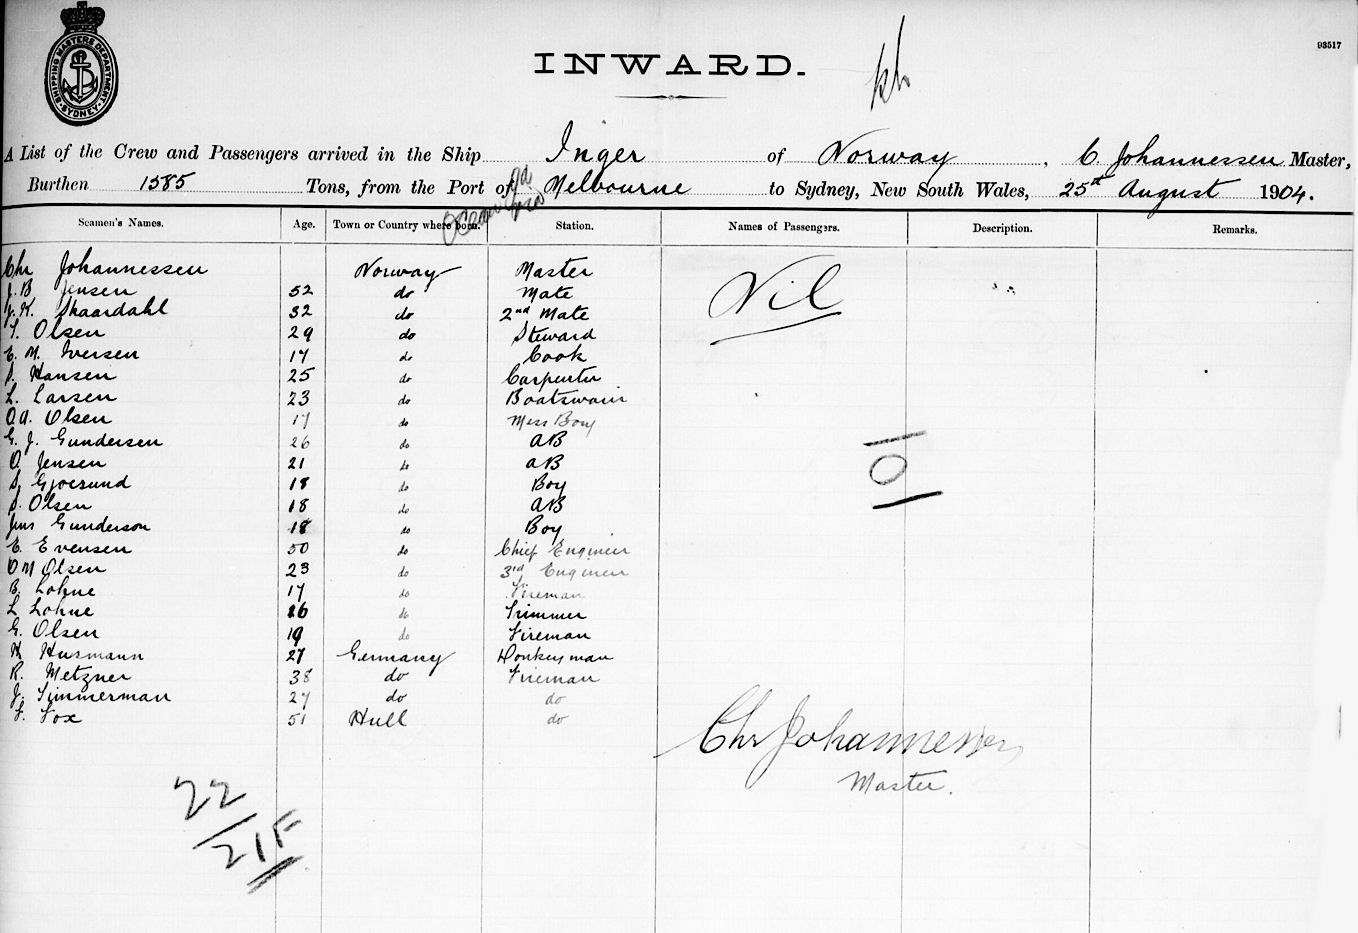 SHIPPING MASTERS DEPARTMENT SYDNEY
93517
INWARD.
A List of the Crew and Passengers arrived in the Ship Inger of Norway, C. Johannessen Master,
Burthen 1585 Tons, from the Port of Melbourne to Sydney, New South Wales, 25th August 1904.
Seamen's Names. Age. Town or Country where born. Station. Names of Passengers. Description. Remarks.
Chr Johannessen Norway Master
J. B Jensen 52 do Mate
Skaardahl 32 do 2nd Mate
Olsen 29 do Steward
E. M. Iversen 17 do Cook
S. Hansen 25 do Carpenter
L. Larsen 23 do Boatswain
O.A. Olsen 17 do Mess Boy
G. J. Gundersen 26 do AB
O Jensen 21 do AB
S. Gjoesund 18 do Boy
S. Olsen 18 do AB
Jens Gunderson 18 do Boy
E. Evensen 50 do Chief Engineer
O M Olsen 23 do 3rd Engineer
B. Lohne 17 do Fireman
L Lohne 26 do Trimmer
G. Olsen 19 do Fireman
H Husmann 27 Germany Donkeyman
R. Metzner 38 do Fireman
J. Timmerman 27 do do
F. Fox 51 Hull do
Nil
101
Chr Johannessen
Master.
22
21F